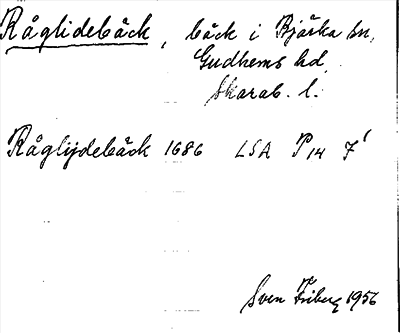 Råglidebäck, bäck i Bjärka sn,
Gudhems hd,
Skarab. l.
Råglijdebäck 1686 LSA P14 7'
Sven Friberg 1956